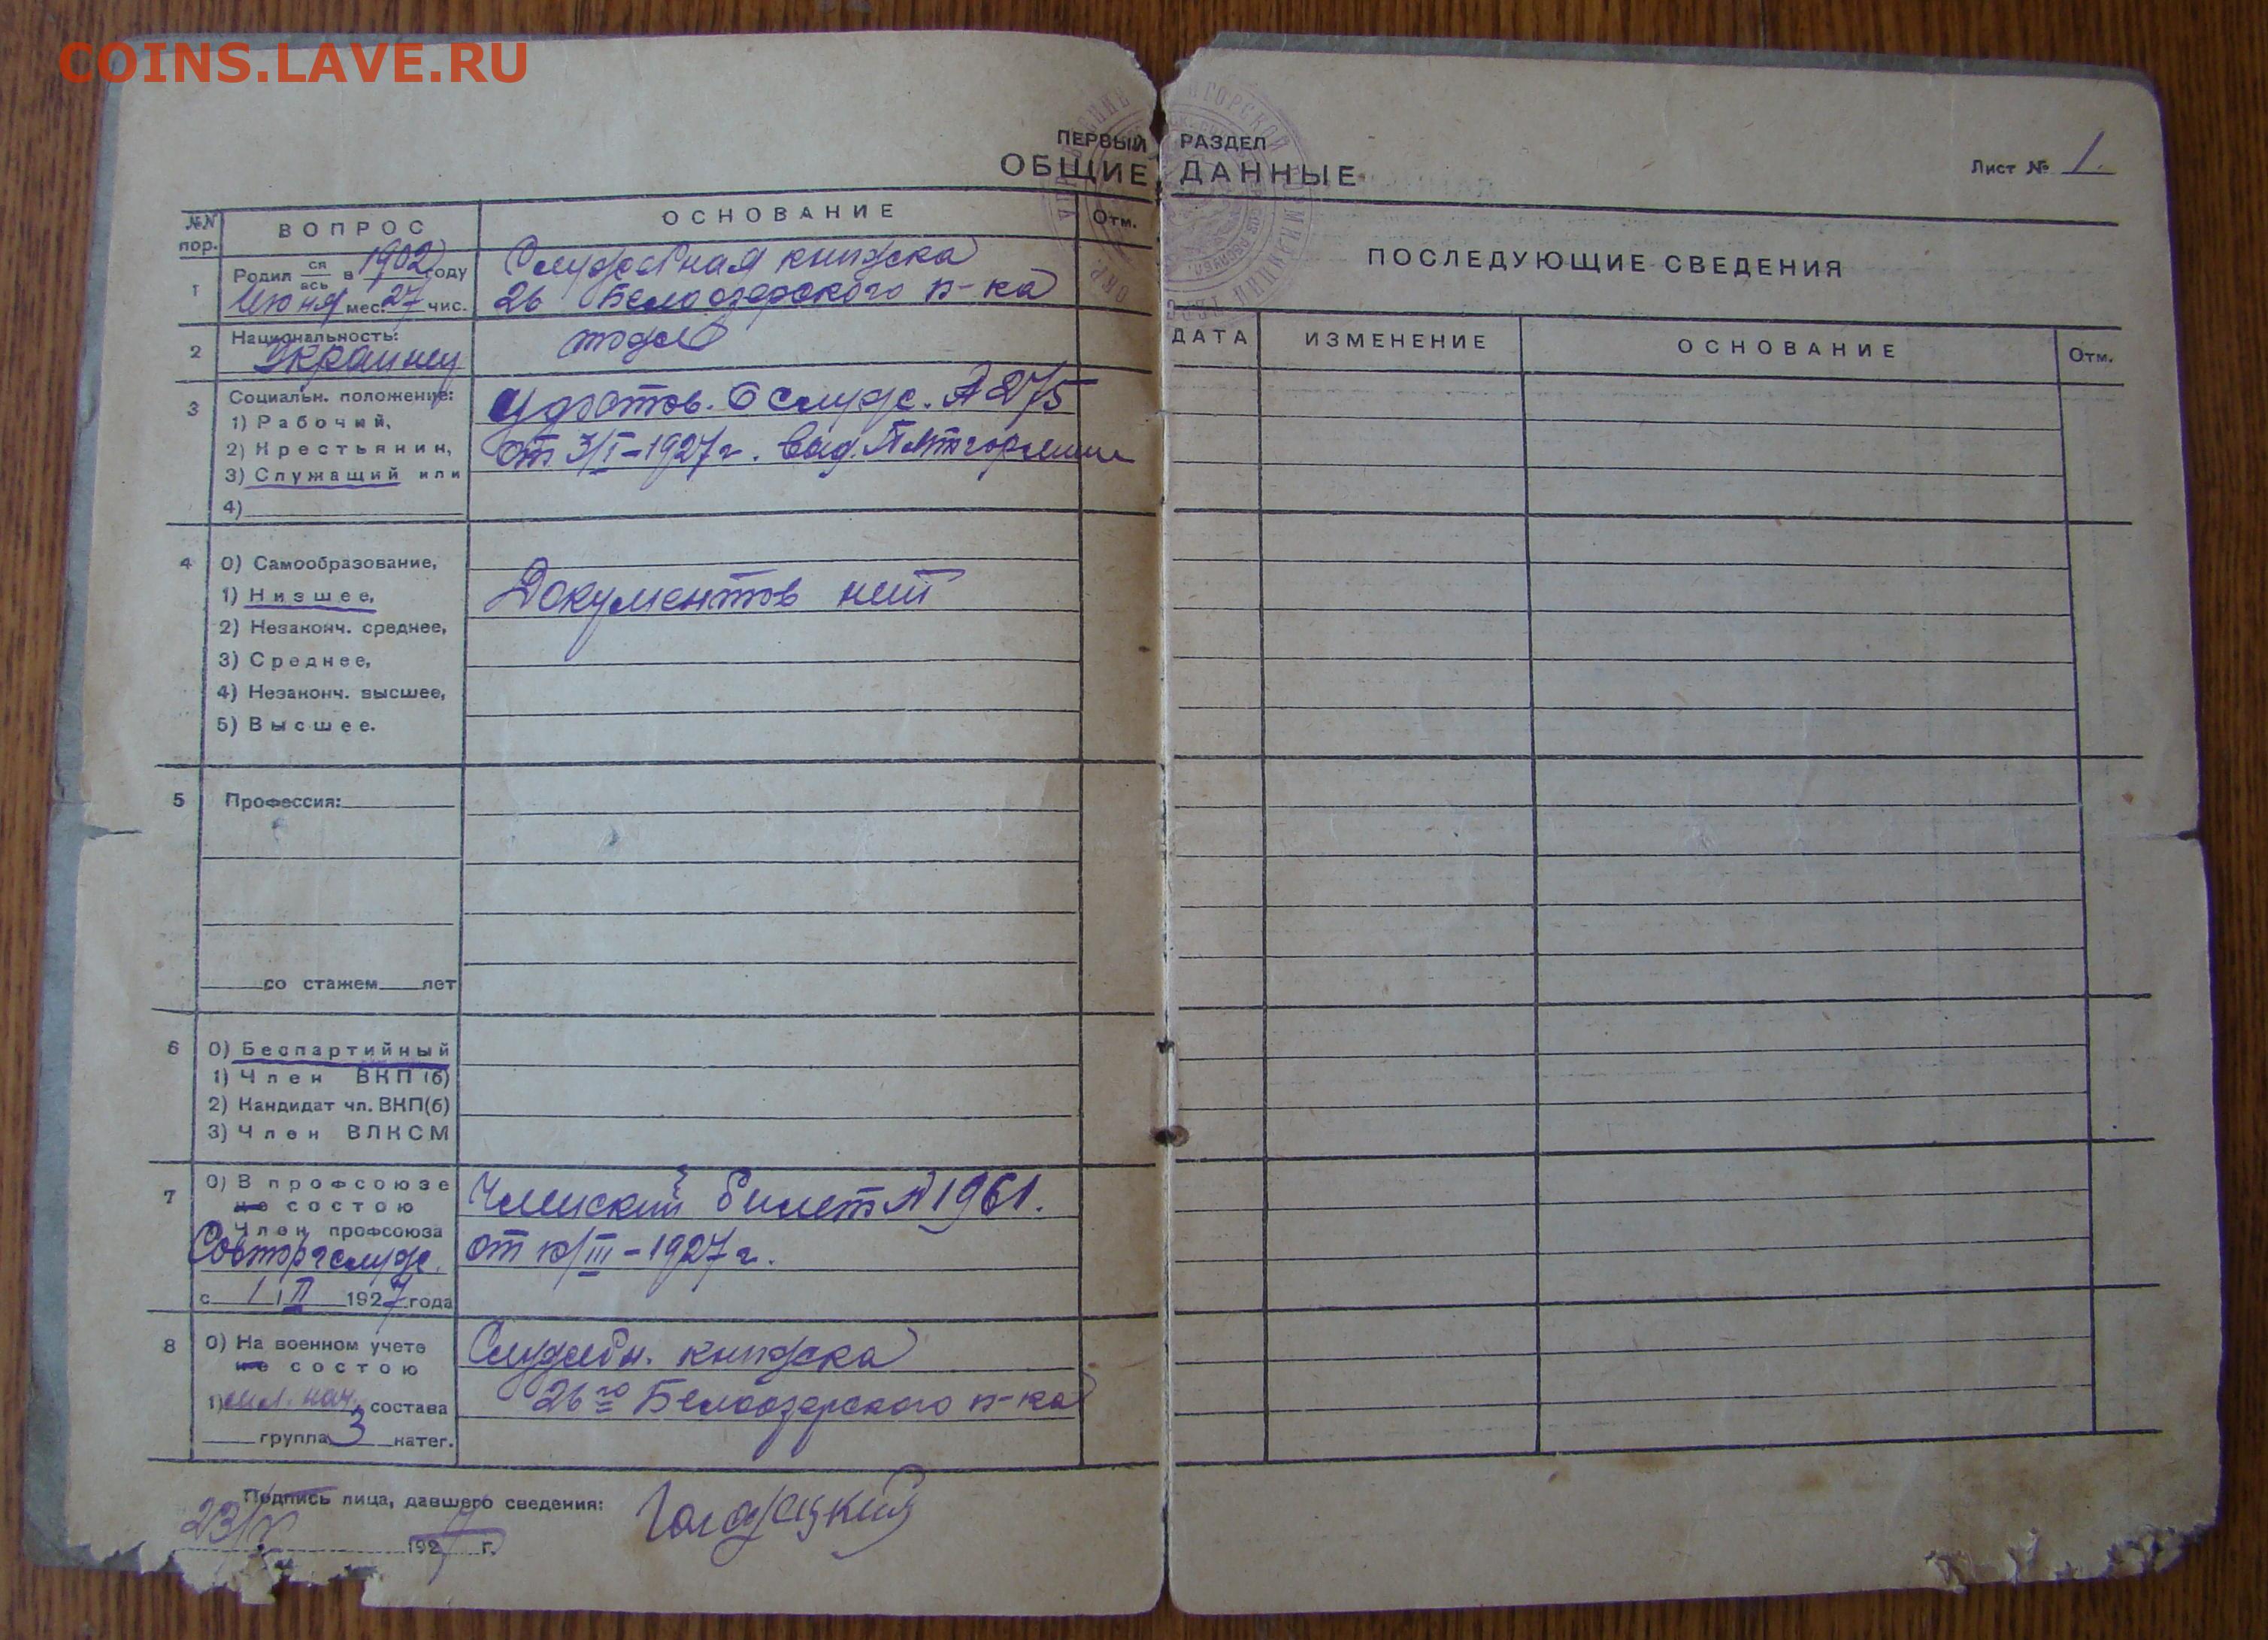 COINS.LAVE.RU
ПЕРВЫЙ РАЗДЕЛ
ОБЩИЕ ДАННЫЕ
Лист № 1.
№№ пор.
ВОПРОС
ОСНОВАНИЕ
Отм.
1
Родил ся ась в 1902 году
Июня мес. 27 чис.
Служебная книжка
26 Белоозерского п-ка
2
Национальность:
Украинец
тоже
3
Социальн. положение:
1) Рабочий,
2) Крестьянин,
3) Служащий или
4)
Удостов. о служ. № 275
от 3/I-1927г. выд.
4
0) Самообразование,
1) Низшее,
2) Незаконч. среднее,
3) Среднее,
4) Незаконч. высшее,
5) Высшее.
Документов нет
5
Профессия:
со стажем лет
6
0) Беспартийный
1) Член ВКП(б)
2) Кандидат чл. ВКП(б)
3) Член ВЛКСМ
7
0) В профсоюзе
не состою
Член профсоюза
Совторгслуж.
с 1 II 1927 года
Членский билет № 1961.
от /III-1927г.
8
0) На военном учете
не состою
1) мл. нач. состава
группа 3 катег.
Служебн. книжка
26го Белоозерского п-ка
Подпись лица, давшего сведения:
23/ 1927 г.
ПОСЛЕДУЮЩИЕ СВЕДЕНИЯ
ДАТА
ИЗМЕНЕНИЕ
ОСНОВАНИЕ
Отм.